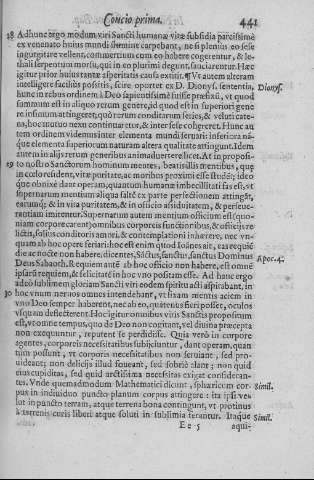 Concio prima. 441
18 Adhunc ergo modum viri Sancti humanæ vitæ subsidia parcissimè
ex venenato huius mundi flumine carpebant, ne si plenius eo sese
ingurgitare vellent, commertium cum eo habere cogerentur, & le-
thali serpentum morsu, qui in eo plurimi degunt, sauciarentur. Hæc
igitur prior huius tantæ asperitatis causa extitit. ¶ Vt autem alteram
intelligere facilius possitis, scire oportet ex D. Dionys. sententia, Dionys.
hunc in rebus ordinem à Deo sapientissimè esse præfixū, vt quod
summum est in aliquo rerum genere, id quod est in superiori gene
re infimum attingeret, quò rerum conditarum series, & veluti cate-
na, hoc mutuo nexu continuaretur, & inter sese cohæreret. Hunc au
tem ordinem videmus inter elementa mundi seruari: inferiora nā-
que elementa superiorum naturam altera qualitate attingunt. Idem
autem in alijs rerum generibus animaduertere licet. At in proposi-
19 to nostro Sanctorum hominum mentes, beatis illis mentibus, quæ
in cœlo resident, vitæ puritate, ac moribus proximi esse studēt: ideo
que obnixè dare operam, quantum humanæ imbecillitati fas est, vt
supernarum mentium aliqua saltē ex parte perfectionem attingāt,
earumq́; & in vita puritatem, & in officio assiduitatem, & perseue-
rantiam imitentur. Supernarum autem mentium officium est (quo-
niam corpore carent) omnibus corporis functionibus, & officijs re
lictis, solius conditoris amori, & contemplationi inhærere, nec vn-
quam ab hoc opere feriari: hoc est enim quod Ioānes ait, eas requiē
die ac nocte non habere, dicentes, Sāctus, sanctus, sanctus Dominus
Deus Sabaoth. Requiem autē ab hoc officio non habere, est omnē Apoc. 4.
ipsarū requiem, & felicitatē in hoc vno positam esse. Ad hanc ergo
adeò sublimem gloriam Sancti viri eodem spiritu acti aspirabant, in
30 hoc vnum neruos omnes intendebant, vt suam mentis aciem in
vno Deo semper haberent, nec ab eo, quatenus fieri posset, oculos
vsquam deflecterent. Hoc igitur omnibus viris Sanctis propositum
est, vt omne tempus, quo de Deo non cogitant, vel diuina præcepta
non exequuntur, reputent se perdidisse. Quia verò in corpore
agentes, corporeis necessitatibus subijciuntur, dant operam, quan
tùm possunt, vt corporis necessitatibus non seruiant, sed pro-
uideant: non delicijs illud foueant, sed sobriè alant: non quid
eius cupiditas, sed quid arctissima necessitas exigat consideran-
tes. Vnde quemadmodum Mathematici dicunt, sphæricum cor- Simil.
pus in indiuiduo puncto planum corpus attingere: ita ipsi ve-
lut in puncto terram, atque terrena bona contingunt, vt protinus
à terrenis curis liberi atque soluti in sublimia ferantur. Itaque Simil.
Ee 5 aqui-